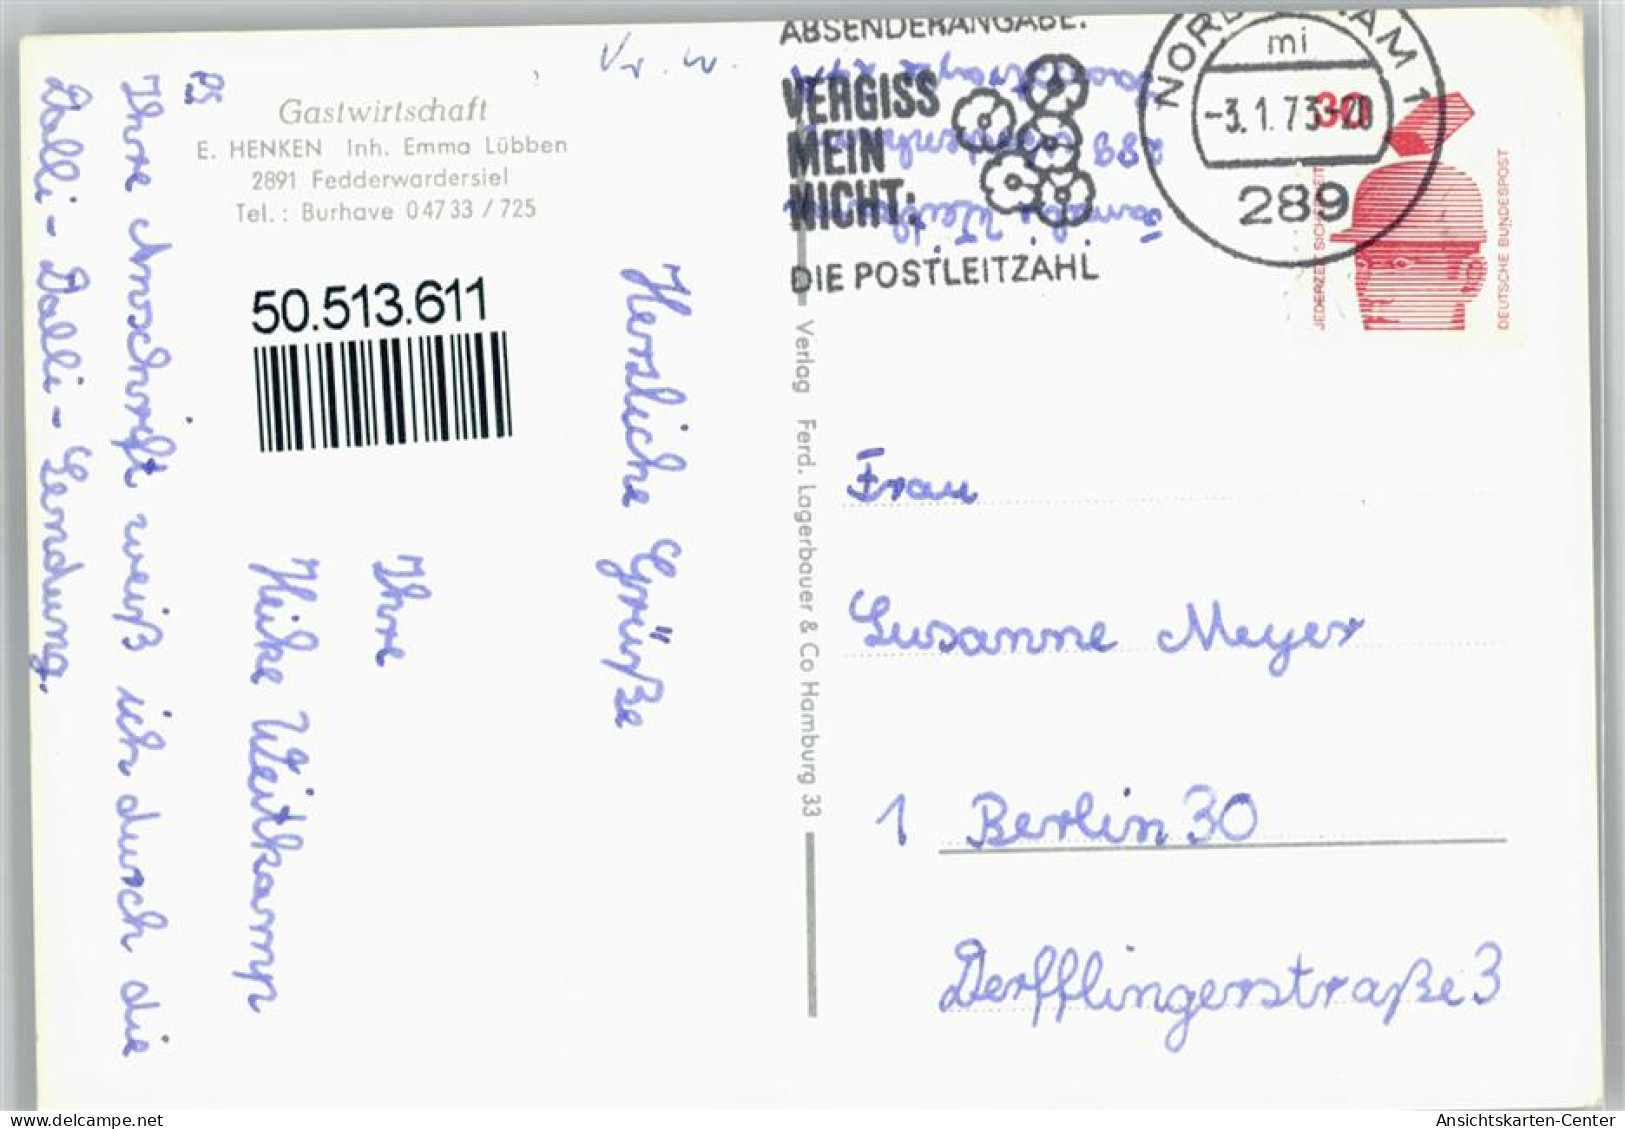 Vr. w.
Gastwirtschaft
E. HENKEN Inh. Emma Lübben
2891 Fedderwardersiel
Tel.: Burhave 04733/725
50.513.611
Herzliche Grüße
Ihre
Heike Weitkamp
PS
Ihre Anschrift weiß ich durch die
Dalli-Dalli-Sendung.
Verlag Ferd. Lagerbauer & Co Hamburg 33
ABSENDERANGABE.
VERGISS
MEIN
NICHT:
DIE POSTLEITZAHL
289
mi
-3.1.73-20
289
30
JEDERZEIT SICHERHEIT
DEUTSCHE BUNDESPOST
Frau
Susanne Meyer
1 Berlin 30
Derfflingerstraße 3
Ansichtskarten-Center